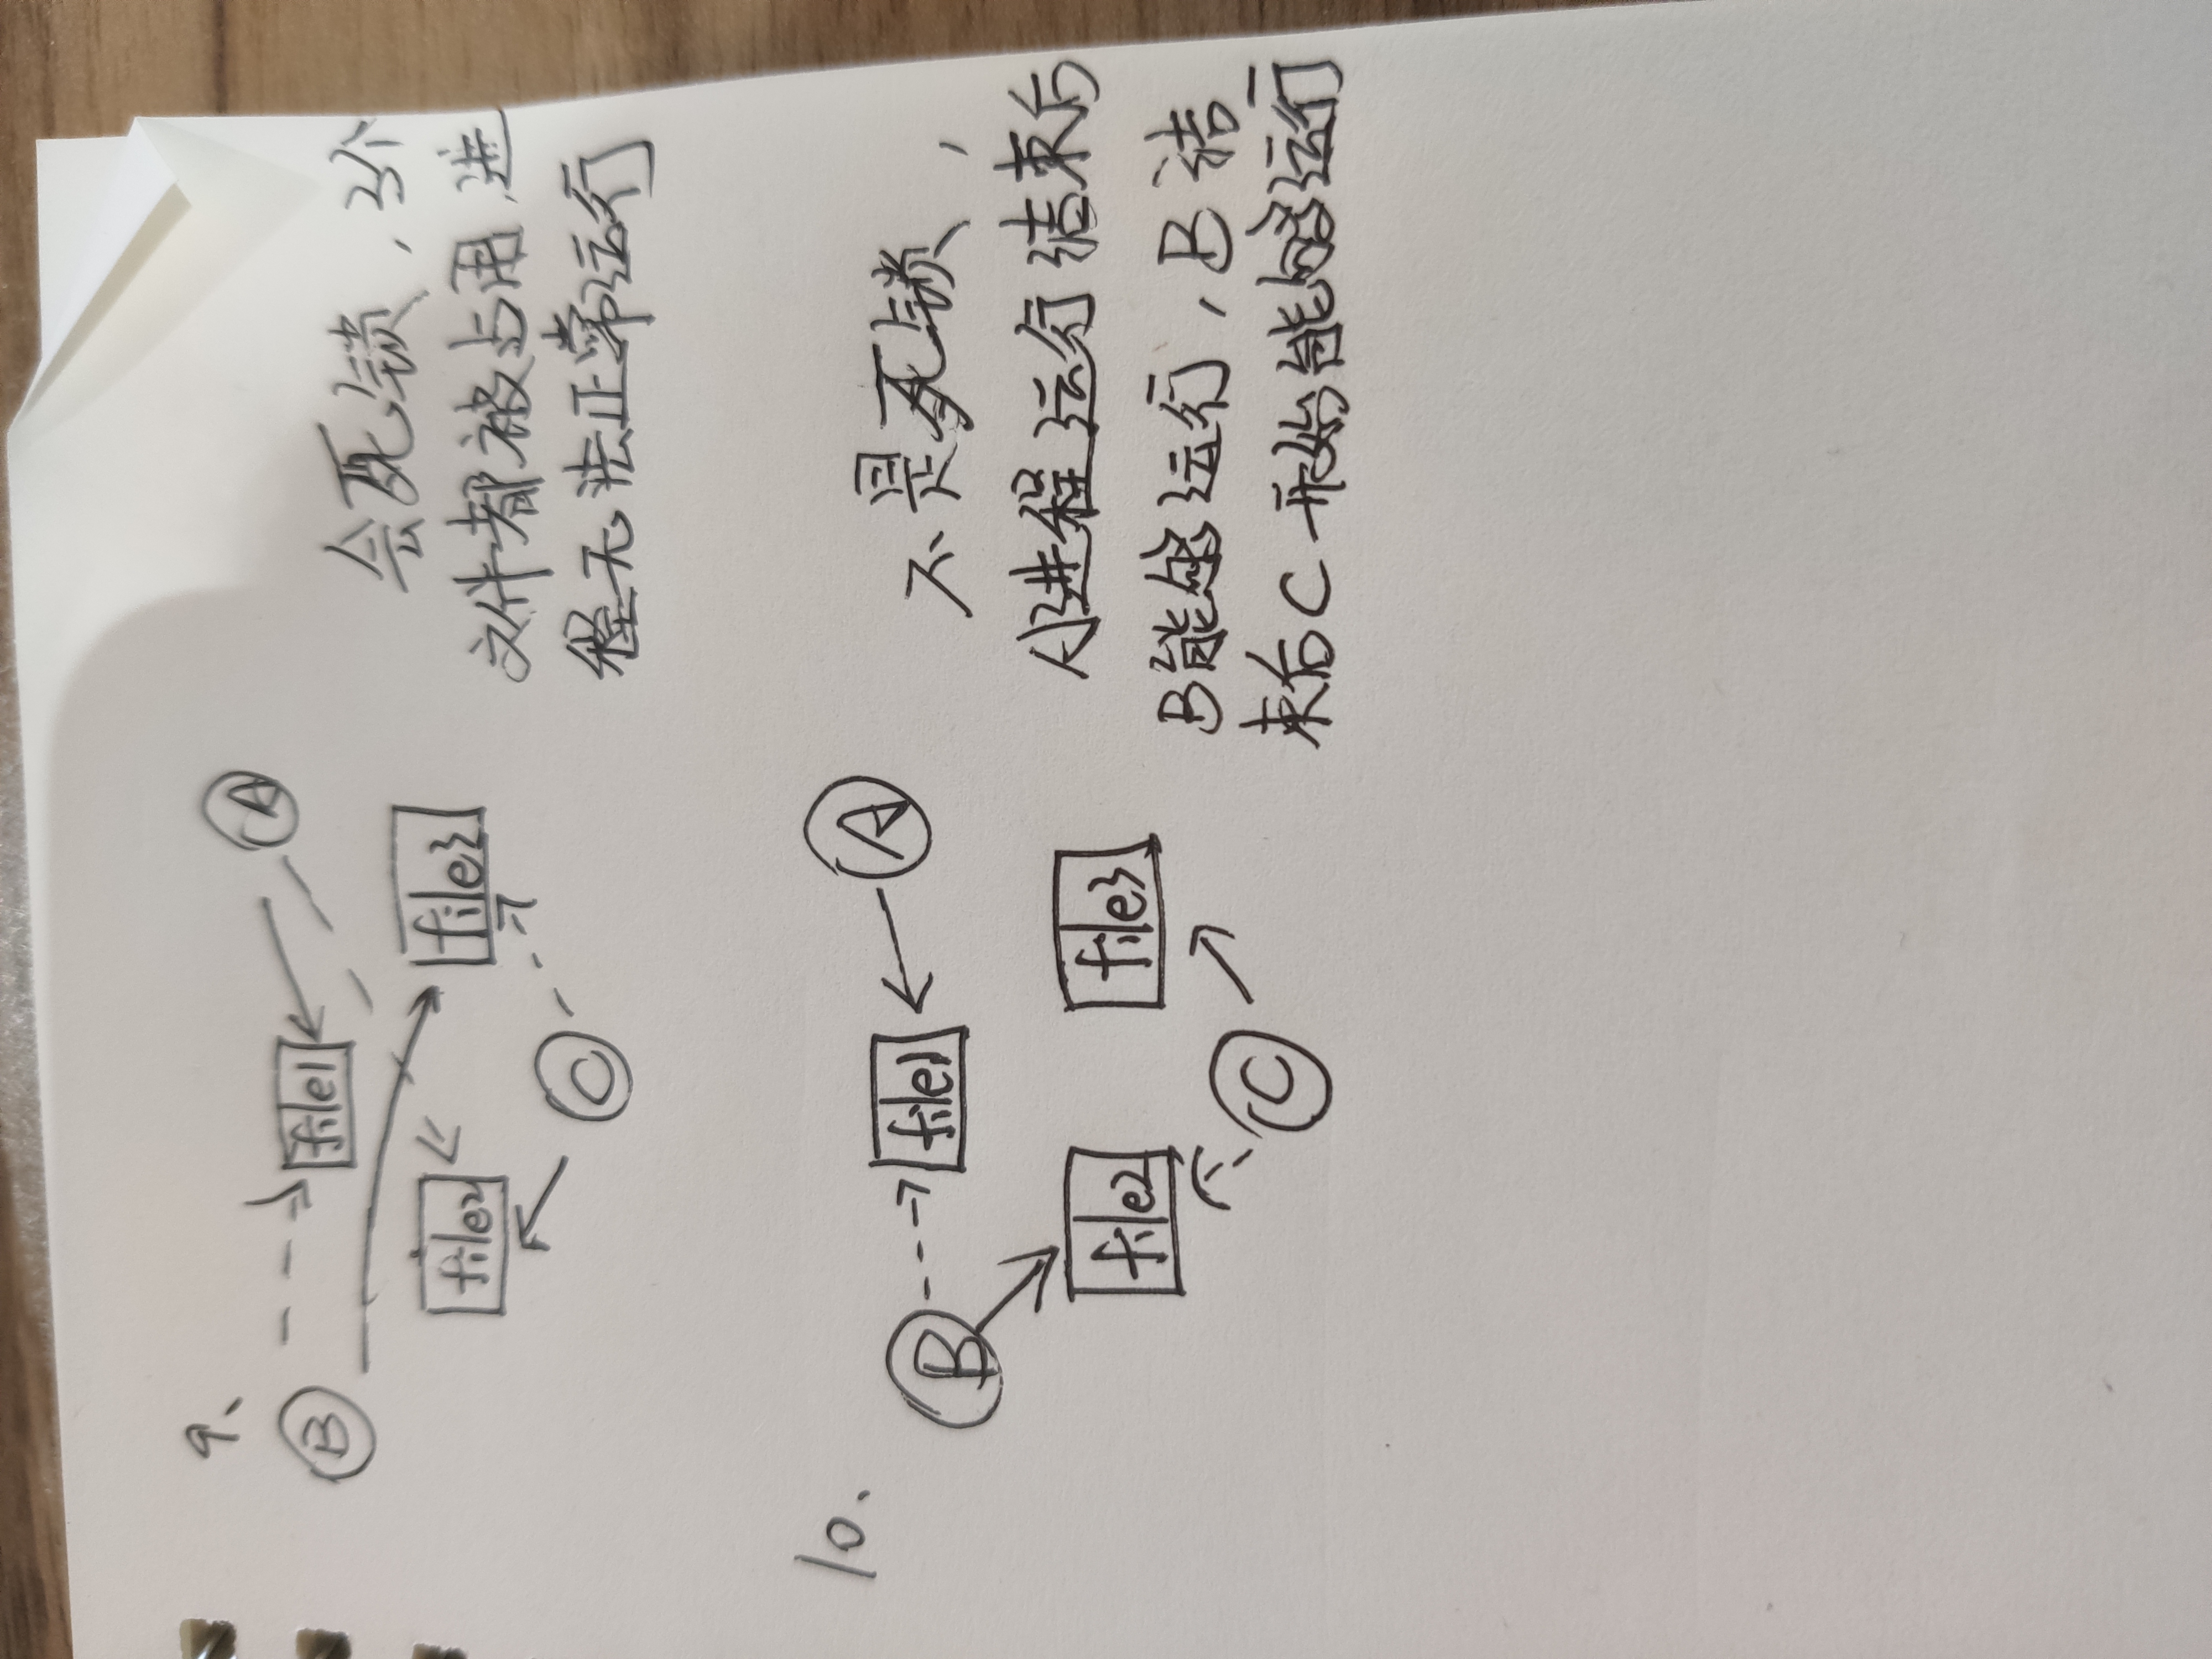 9、
B
file1
A
file2
file3
C
会死锁，3个
文件都被占用,进
程无法正常运行
10、
B
file1
A
file2
file3
C
不是死锁，
A进程运行结束后
B能够运行，B结
束后C开始能够运行